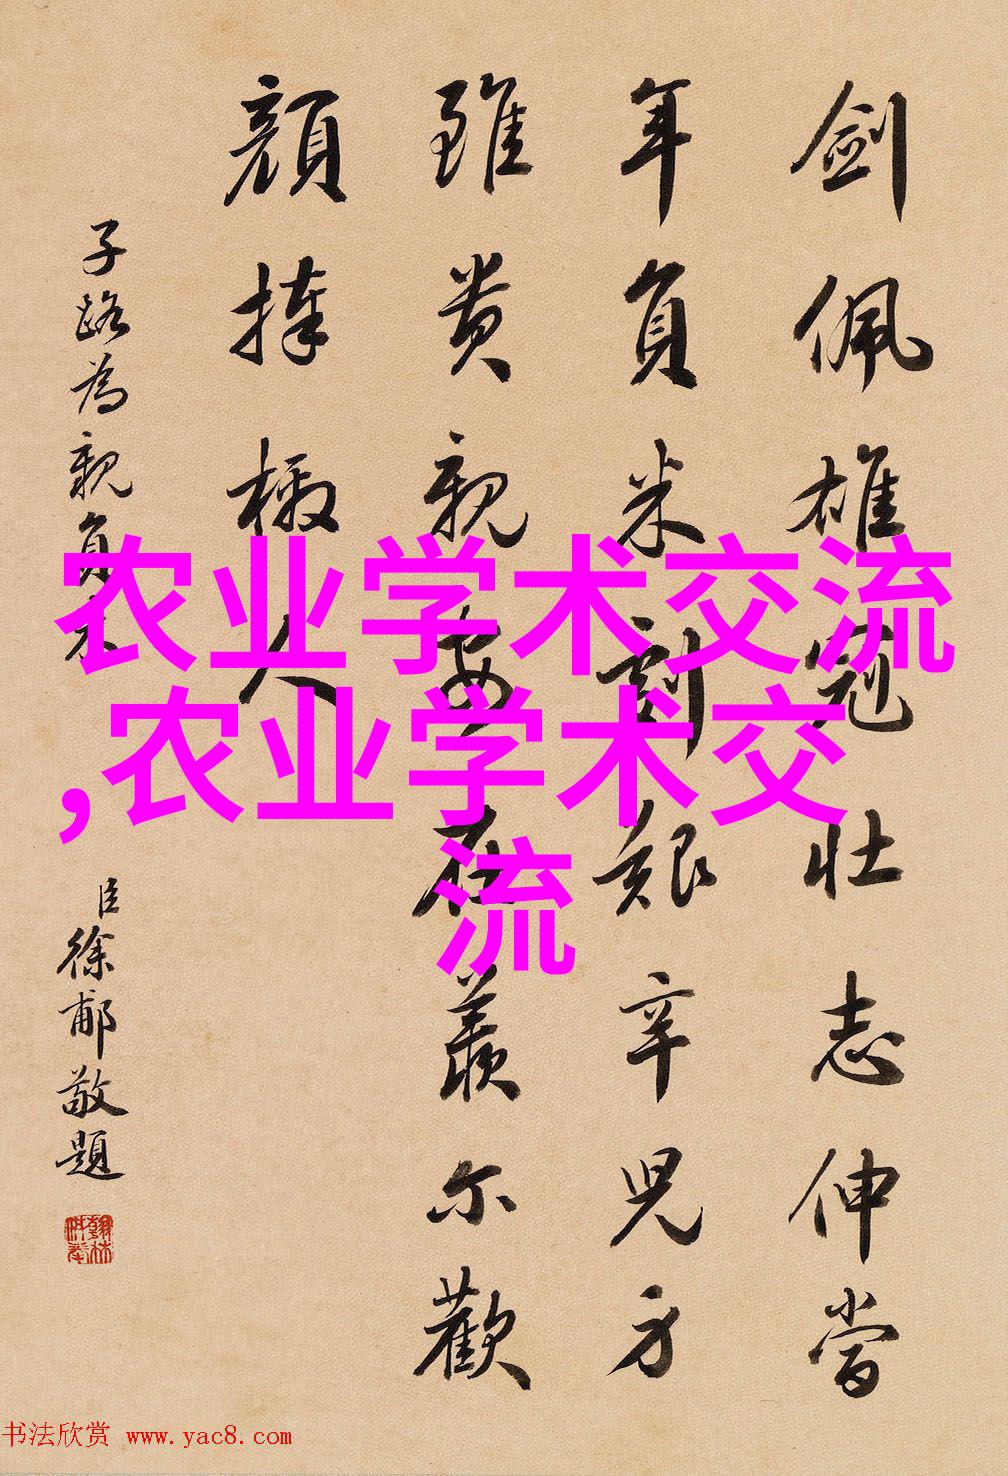 劍佩雄冠壯志伸當
年負米劇艱辛兒方
雖貴親安在羨尔歡
顔捧檄人
子路為親負米
臣徐郙敬題
农业学术交流
,农业学术交
流
书法欣赏 www.yac8.com